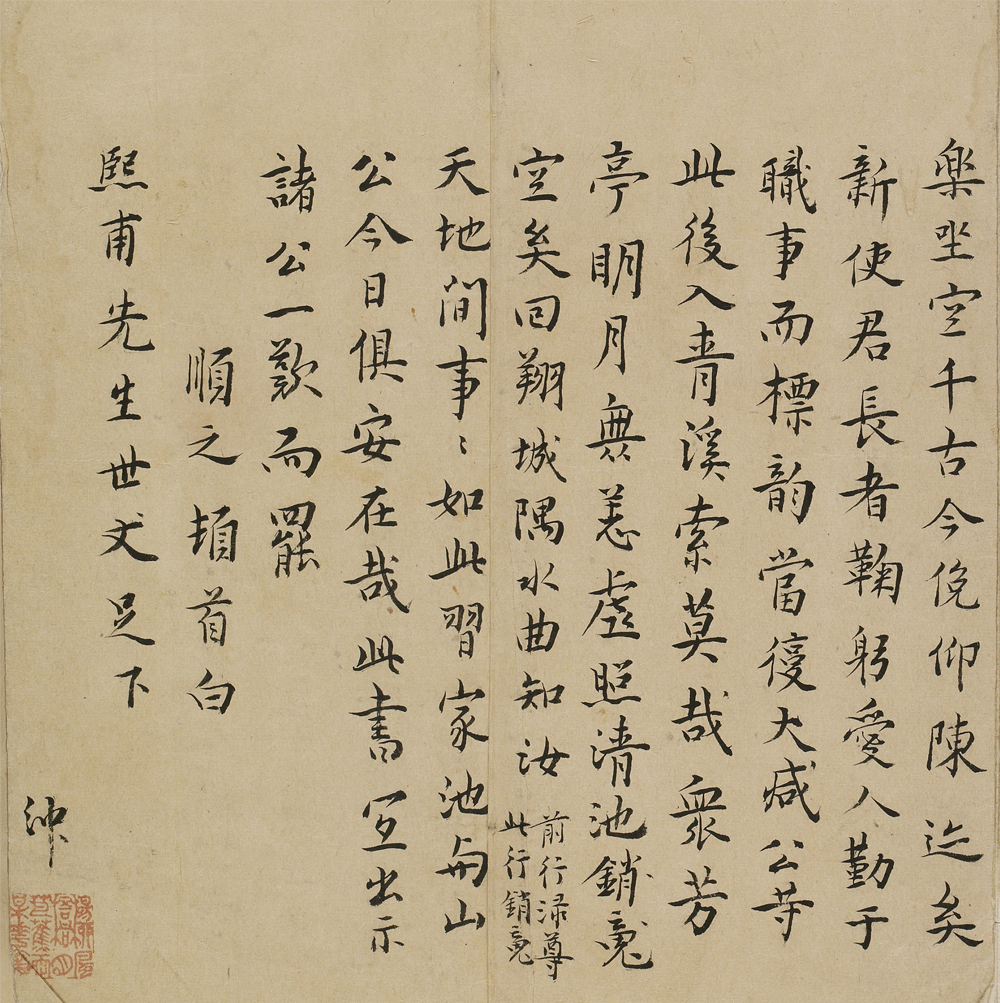 樂坐空千古今俛仰陳迹矣
新使君長者鞠躬愛人勤于
職事而標韵當復大減公等
此後入青溪索莫哉衆芳
亭明月無恙虛照清池銷魂
空矣回翔城隅水曲知汝
前行渌尊
此行銷魂
天地間事〻如此習家池與山
公今日俱安在哉此書宜出示
諸公一歎而罷
順之頓首白
熙甫先生世丈足下
沖